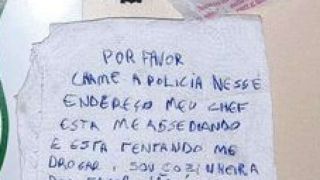 POR FAVOR
CHAME A POLICIA NESSE
ENDEREÇO MEU CHEF
ESTA ME ASSEDIANDO
E ESTA TENTANDO ME
DROGAR, SOU COZINHEIRA